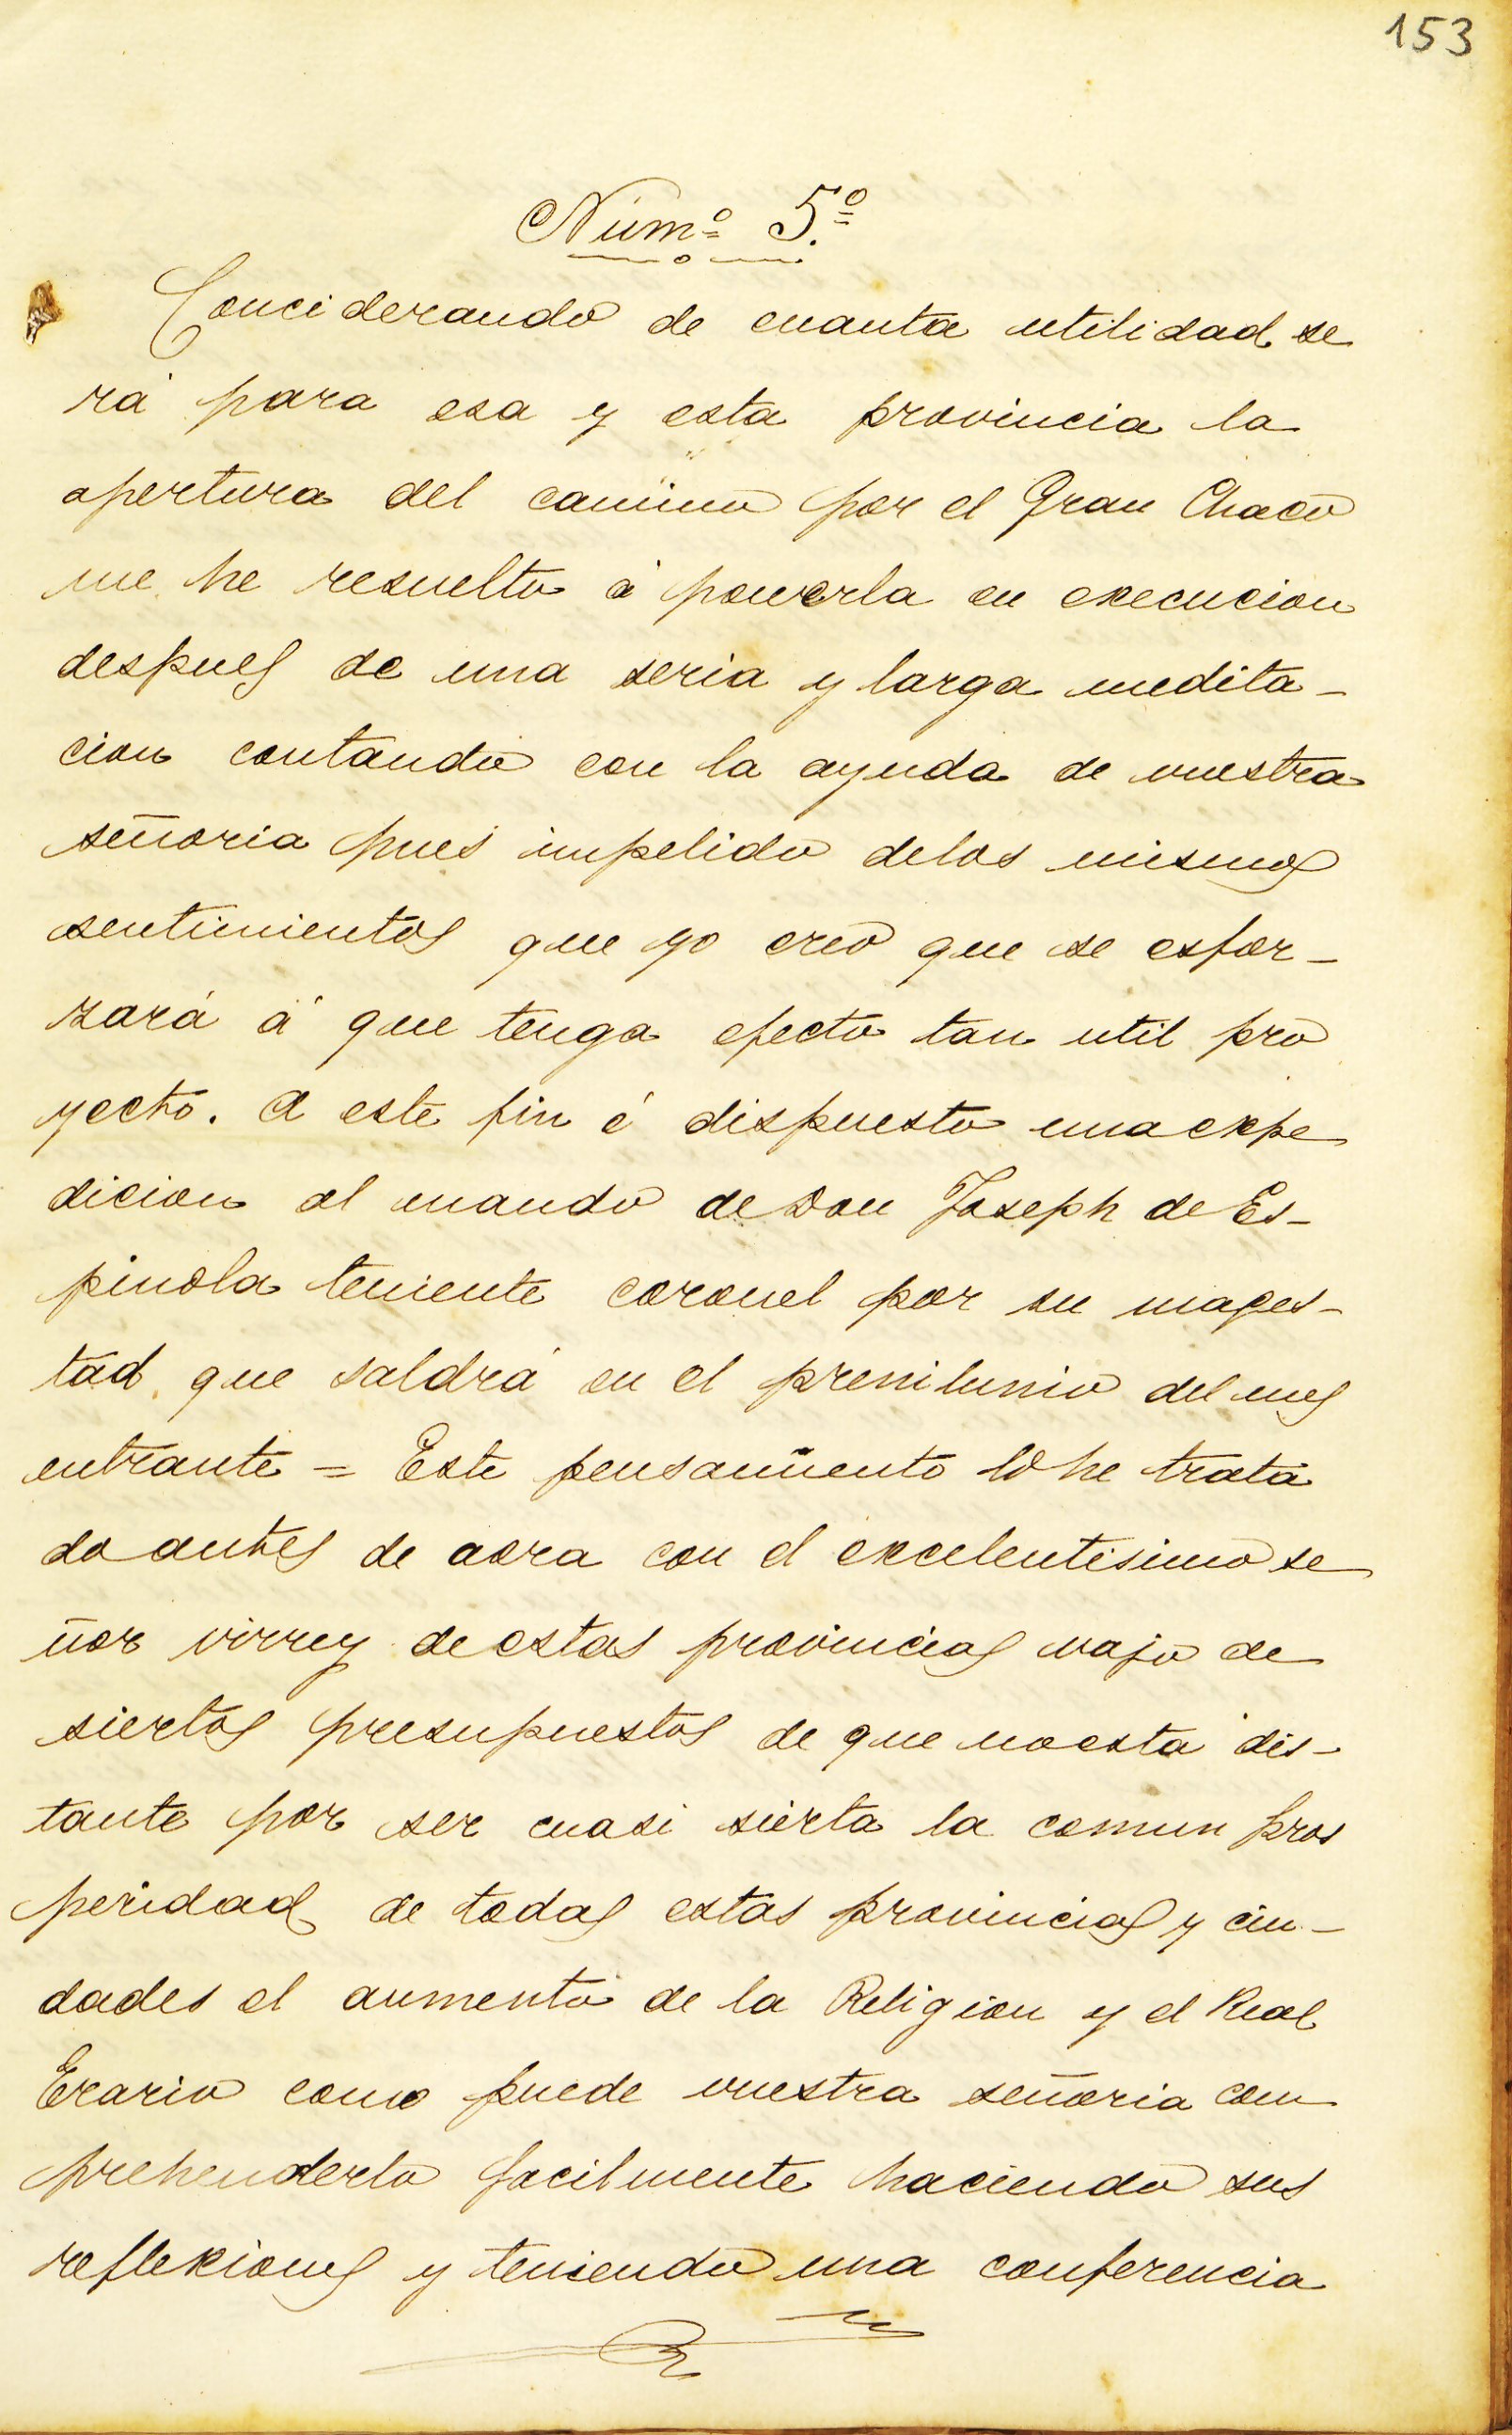 153
Núm.º 5.º
Conciderando de cuanta utilidad se
rá para esa y esta provincia la
apertura del camino por el Gran Chaco
me he resuelto á ponerla en execucion
despues de una seria y larga medita-
cion contando con la ayuda de vuestra
señoria pues impelido delos mismos
sentimientos que yo creo que se esfor-
zará á que tenga efecto tan util pro
yecto. A este fin é dispuesto una expe
dicion al mando de Don Joseph de Es-
pinola teniente coronel por su mages-
tad que saldrá en el prenilunio del mes
entrante = Este pensamiento lo he trata
do antes de aora con el excelentisimo se
ñor virrey de estas provincias vajo de
siertos presupuestos de que no está dis-
tante por ser cuasi sierta la comun pros
peridad de todas estas provincias y ciu-
dades el aumento de la Religion y el Real
Erario como puede vuestra señoria com
prehenderlo facilmente haciendo sus
reflexiones y teniendo una conferencia